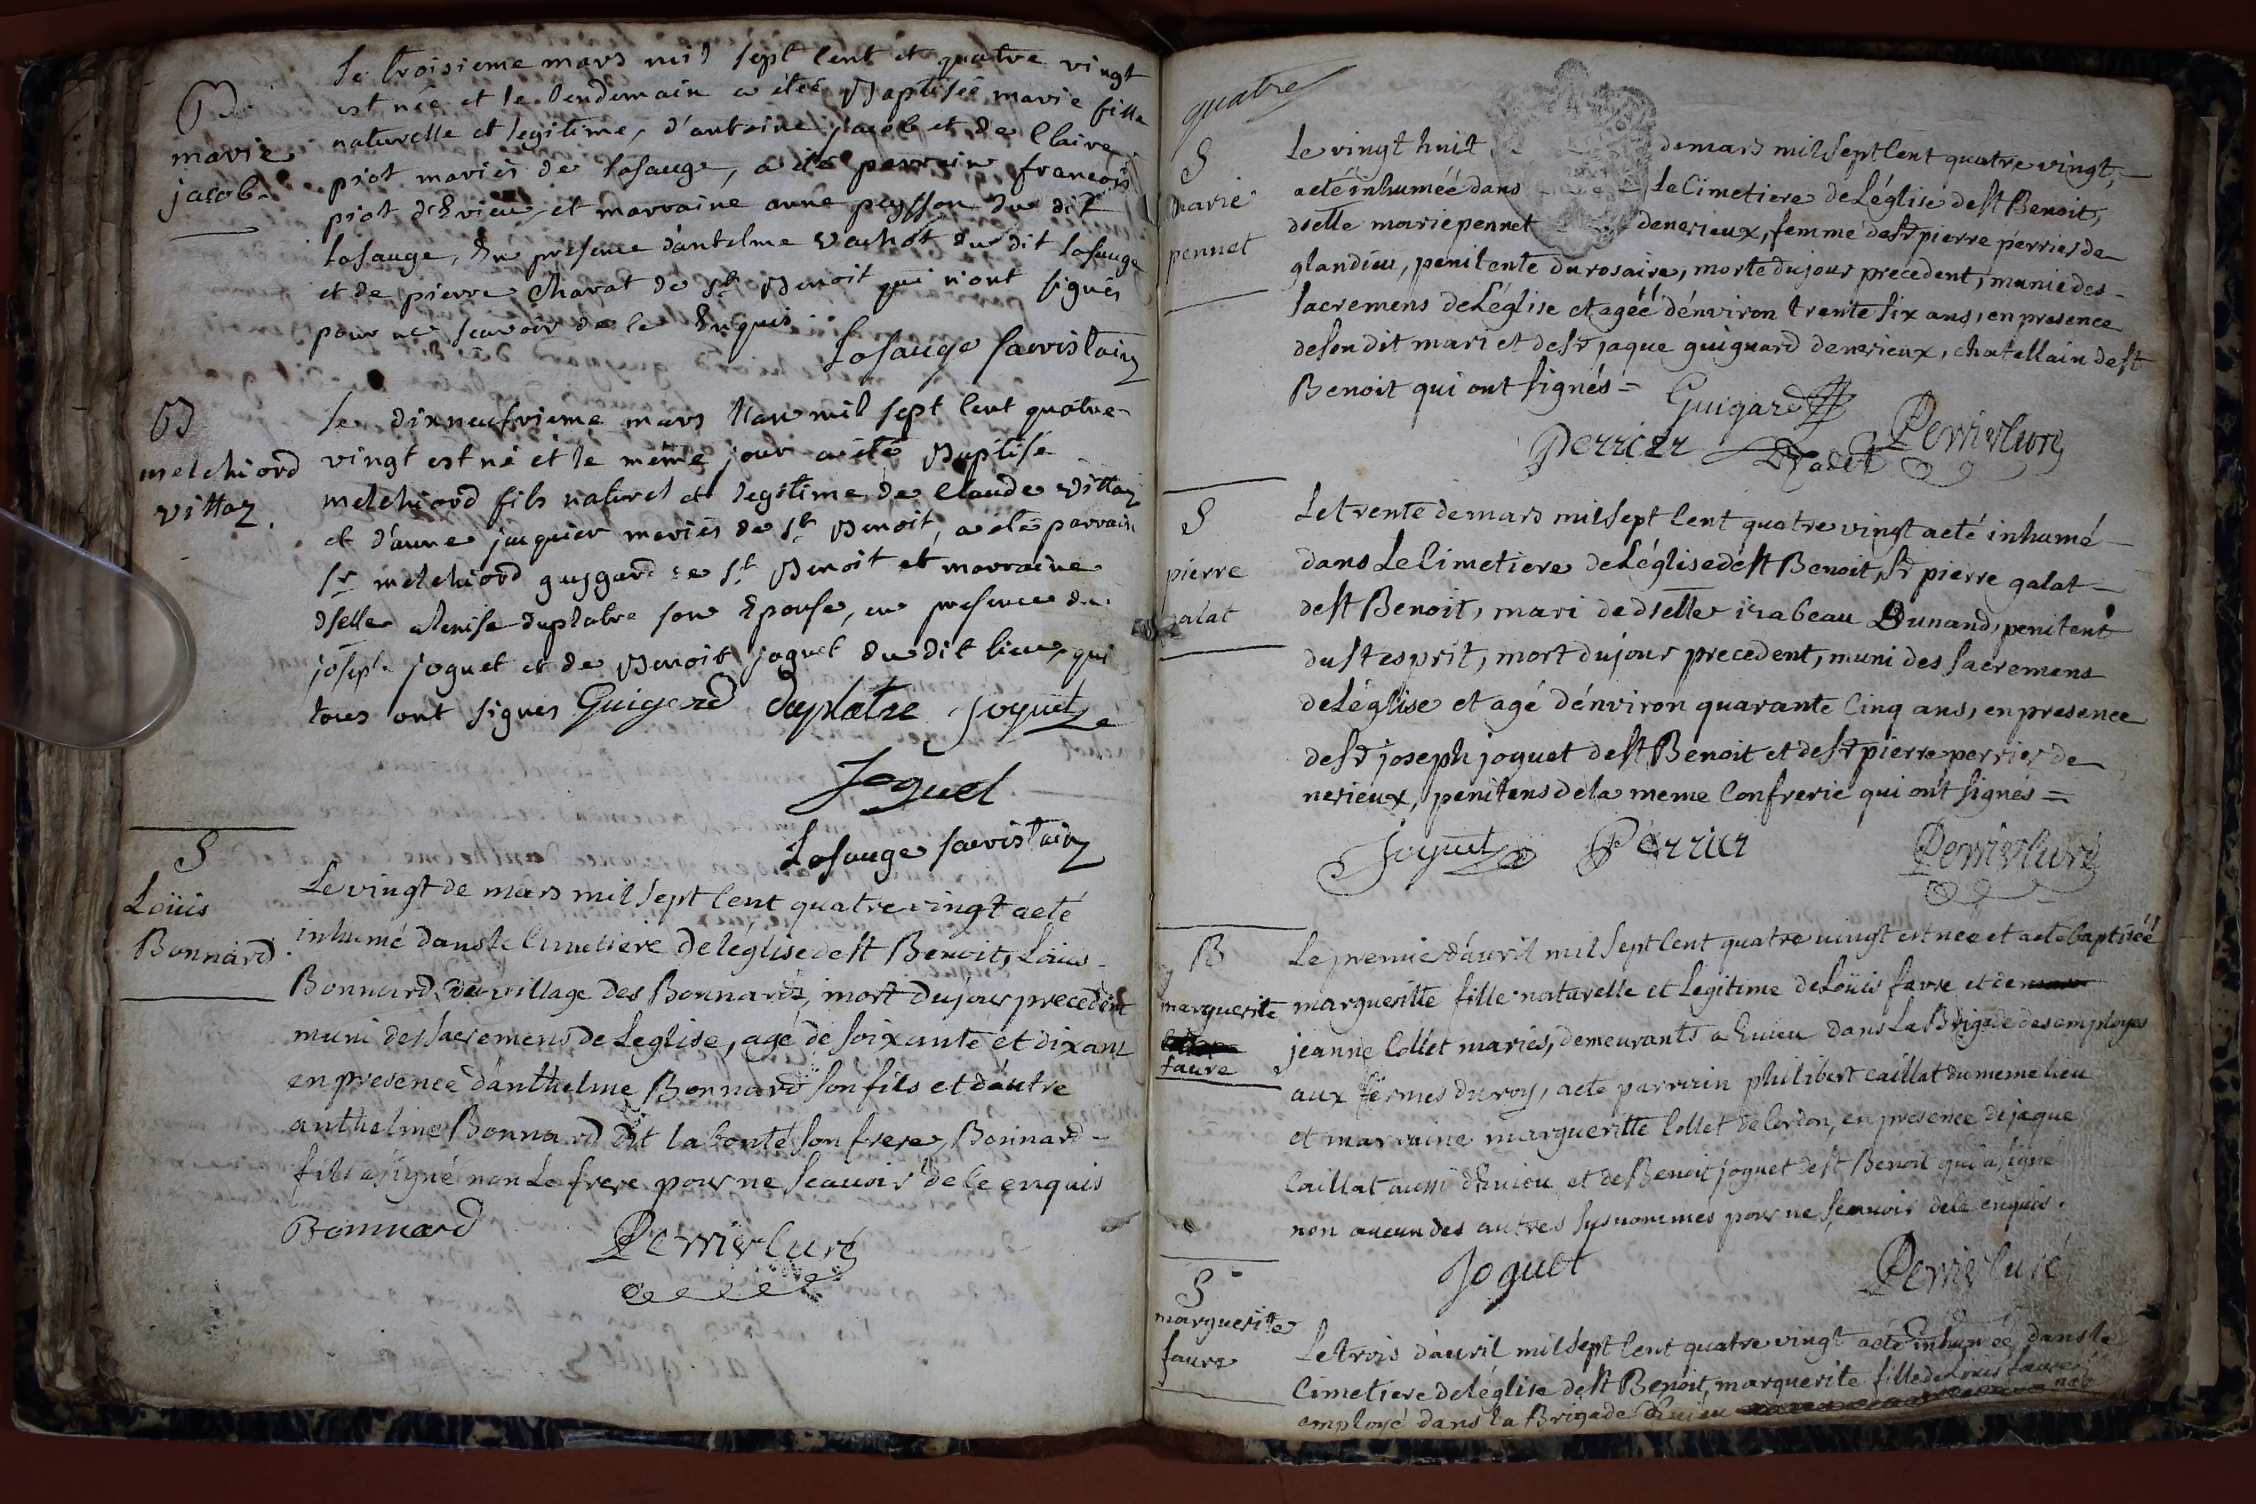 B
marie
jacob.
Le troisieme mars mil sept cent et quatre vingt
est née et le lendemain a étée Baptisée marie fille
naturelle et legitime, d'antoine jacob et de Claire
piot mariés de losauge, a été parrain francois
piot d'Evieu, et marraine anne peysson du dit
losauge, En presence d'antelme vachot du dit losauge
et de pierre Charat de st Benoit qui n'ont signés
pour ne scavoir de ce Enquis.
Losauge sacristain
B
melchiord
vittoz.
Le dixneufvieme mars l'an mil sept cent quatre
vingt est né et le même jour a été Baptisé
melchiord fils naturel et legitime de Claude vittoz
et d'anne jacquier mariés de st Benoit, a été parrain
sr melchiord guygard de st Benoit et marraine
dselle denise duplatre son Epouse, en presence de
joseph joguet et de Benoit joguet du dit lieu, qui
tous ont signes Guigard duplatre joguet
Joguet
Losauge sacristain
S
Loüis
Bonnard.
Le vingt de mars mil sept cent quatre vingt a eté
inhumé dans le cimetiere de léglise de st Benoit, Loüis
Bonnard, du village des Bonnard, mort du jour precedent
muni des sacremens de Leglise, agé de soixante et dix ans
en presence d'anthelme Bonnard son fils et d'autre
anthelme Bonnard dit la bonté son frere, Bonnard
fils a signé non Le frere pour ne scauoir de ce enquis
Bonnard Perrier Curé
quatre
S
marie
pennet
Le vingt huit de mars mil sept cent quatre vingt,
a eté inhuméé dans le Cimetiere de Léglise de st Benoit,
dselle marie pennet de nerieux, femme de sr pierre perrier de
glandieu, penitente du rosaire, morte du jour precedent, munie des
sacremens de Léglise et agéé d'énviron trente six ans, en presence
de son dit mari et de sr jaque guiguard de nerieux, chatellain de st
Benoit qui ont signés = Guigard
Perrier Perrier Curé
S
pierre
galat
Le trente de mars mil sept cent quatre vingt a eté inhumé
dans Le Cimetiere de Léglise de st Benoit, sr pierre galat
de st Benoit, mari de dselle izabeau Dunand, penitent
du st esprit, mort du jour precedent, muni des sacremens
de Léglise et agé d'énviron quarante Cinq ans, en presence
de sr joseph joguet de st Benoit et de sr pierre perrier de
nerieux, penitens de la meme Confrerie qui ont signés =
Joguet Perrier Perrier Curé
B
marguerite
faure
Le premier d'auril mil sept cent quatre uingt est nee et a ete baptiséé
margueritte fille naturelle et Legitime de Loüis favre et de
jeanne Collet mariés, demeurants a Euieu dans La Brigade des employes
aux fermes du roy, a ete parrain philibert caillat du meme lieu
et marraine margueritte Collet de Cordon, en presence de jaque
Caillat aussi d'Euieu et de Benoit joguet de st Benoit qui a signé
non aucun des autres susnommes pour ne scauoir de ce enquis.
Joguet Perrier Curé
S
marguerite
faure
Le trois d'auril mil sept cent quatre vingt a eté inhumée dans le
Cimetiere de léglise de st Benoit, marguerite fille de Louis faure
employé dans la Brigade d'Euieu